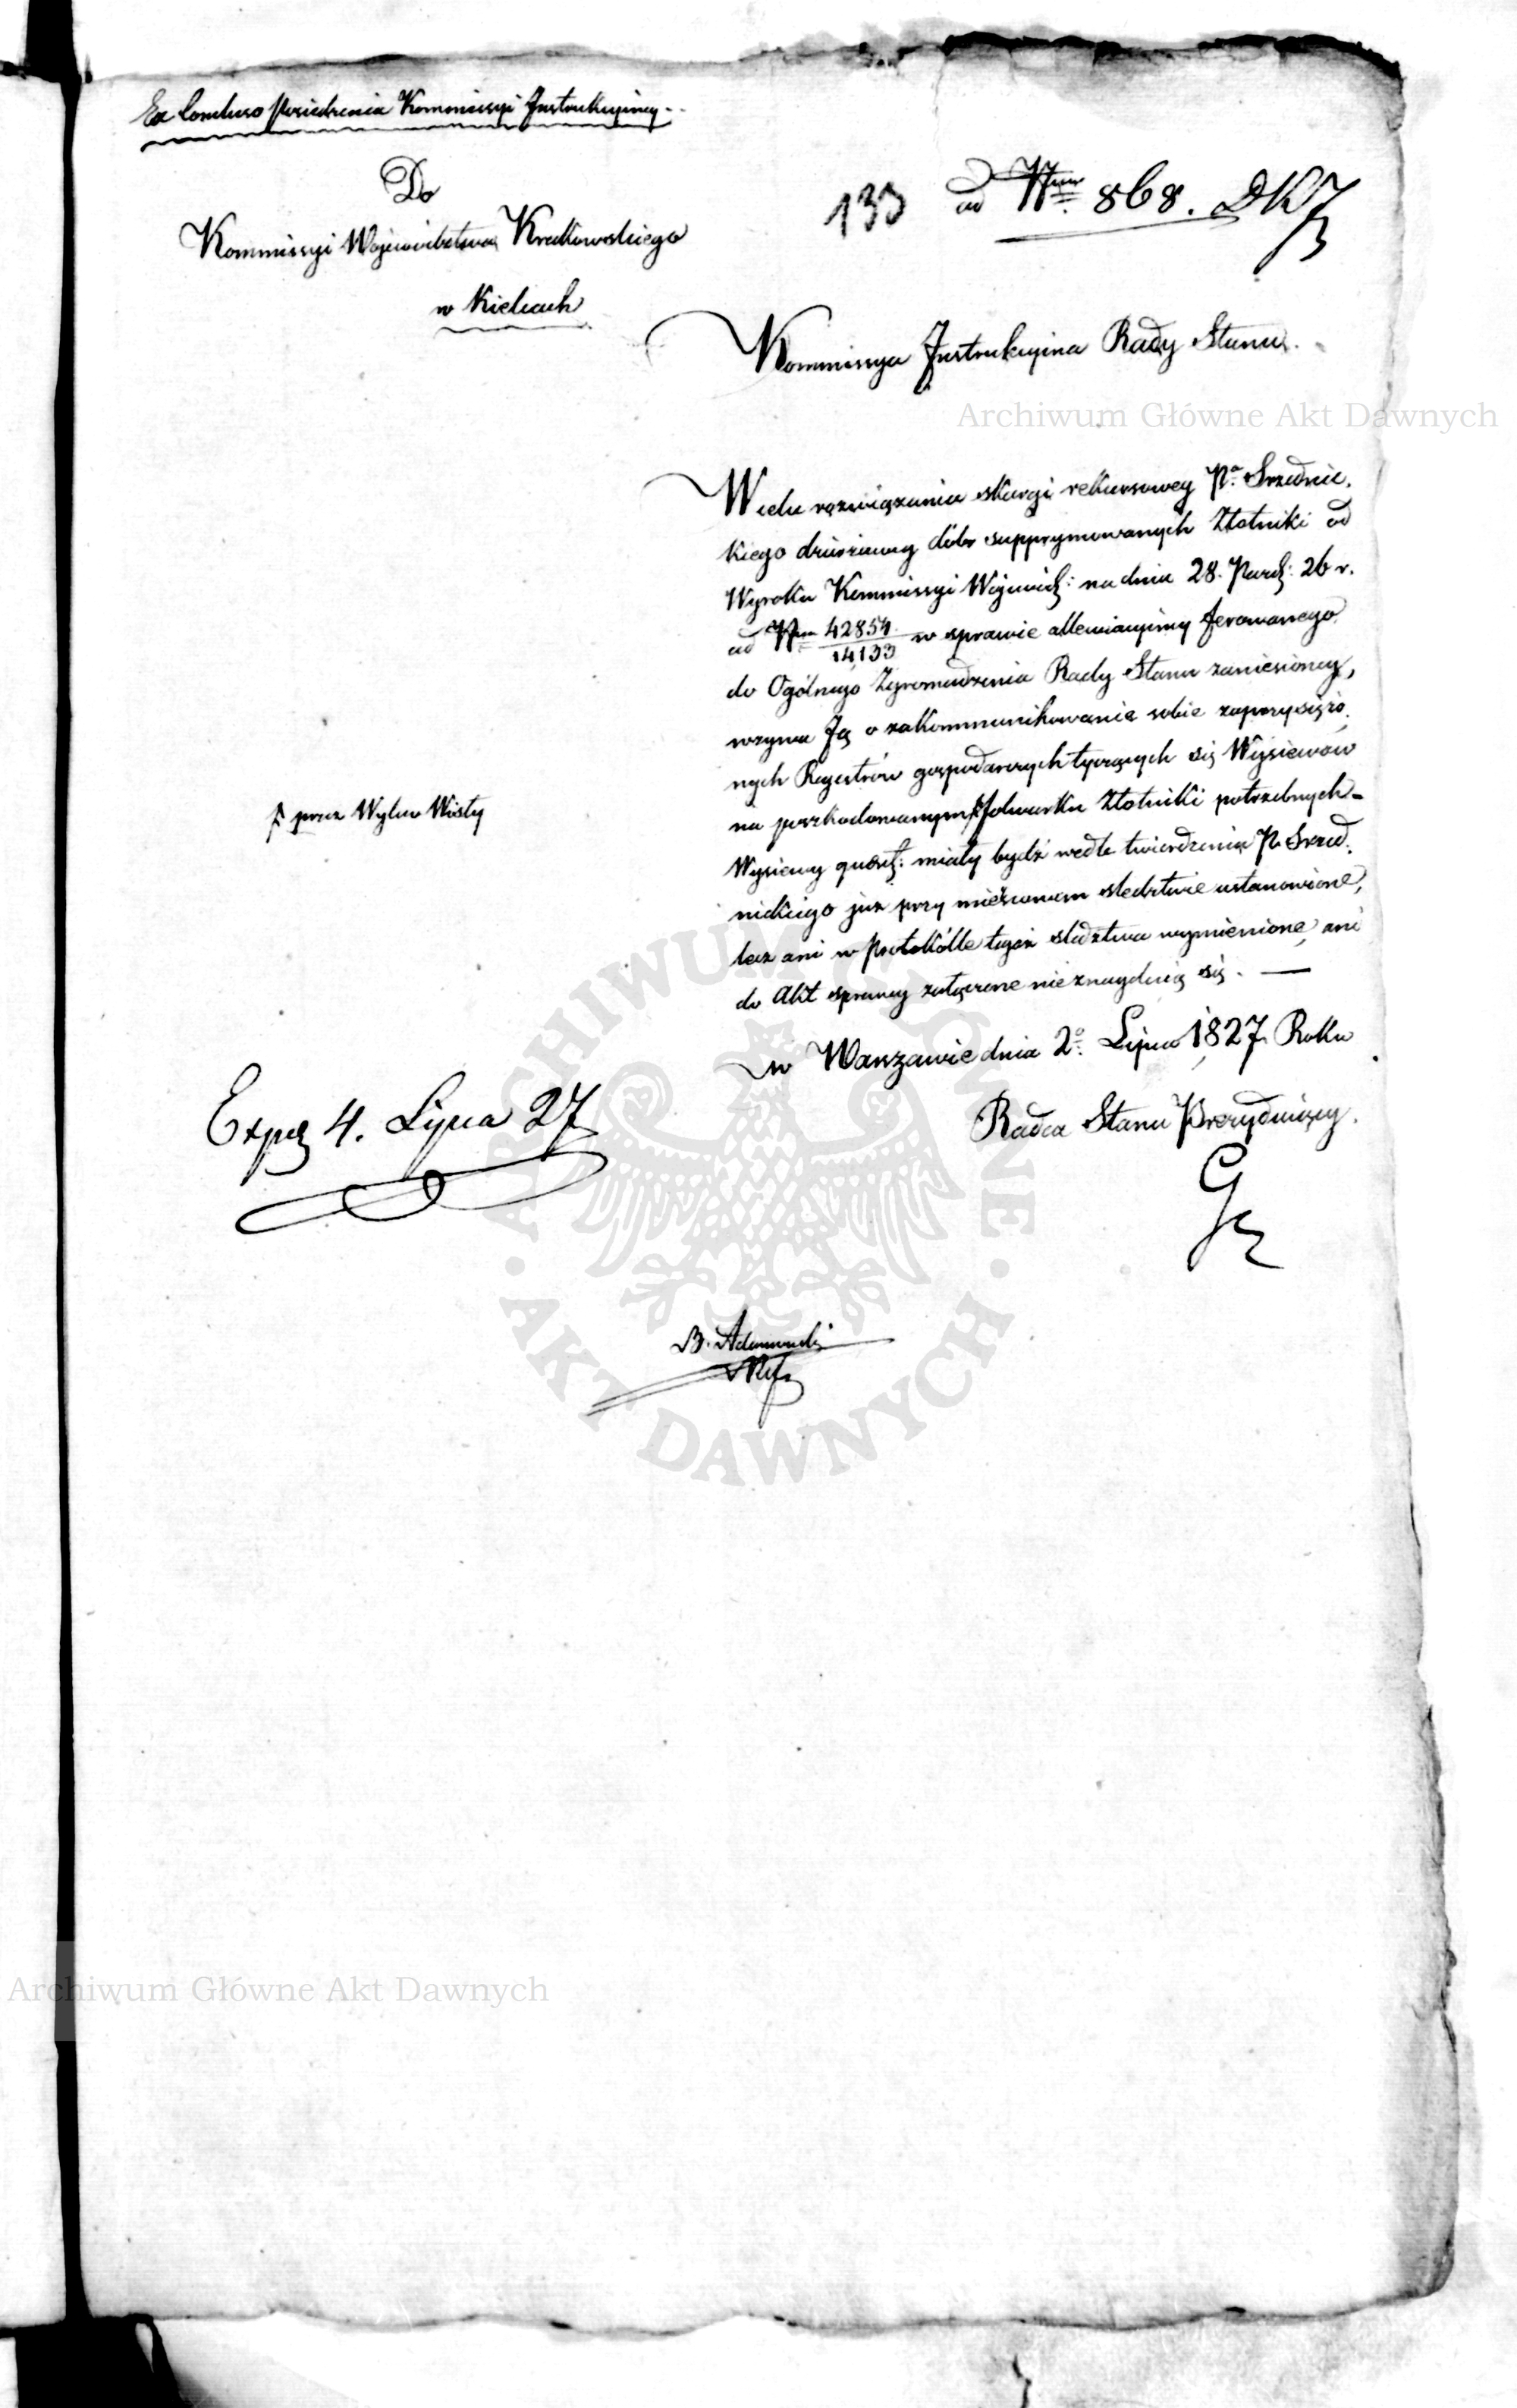 Ex Concluso Posiedzenia Kommissyi Instrukcyiney
Do
Kommissyi Województwa Krakowskiego
w Kielcach
133 ad Nrum 868. DKJ
Kommissya Instrukcyina Rady Stanu.
Archiwum Główne Akt Dawnych
W celu rozwiązania skargi rekursowey Pa. Srzednic,
kiego dzierżawcy dóbr supprymowanych Złotniki od
Wyroku Kommissyi Wojewódz: na dniu 28. Paźdź: 26 r.
ad Nrum 42854/14133 w sprawie allewiacyiney ferowanego
do Ogólnego Zgromadzenia Rady Stanu zaniesioney,
wzywa Ją o zakommunikowanie sobie zaprzysiężo,
nych Regestrów gospodarczych tyczących się Wysiewów
na poszkodowanym folwarku Złotniki potrzebnych –
przez Wylew Wisły
Wysiewy quaest: miały bydź wedle twierdzenia P. Srzed,
nickiego już przy mieyscowem śledztwie ustanowione,
lecz ani w Protokólle tegoż śledztwa wymienione, ani
do Akt sprawy załączone nie znayduią się. —
w Warszawie dnia 2o. Lipca 1827. Roku
Radca Stanu Prezyduiący.
Exped 4. Lipca 27
B. Adamowski
Ref
ARCHIWUM GŁÓWNE
AKT DAWNYCH
Archiwum Główne Akt Dawnych